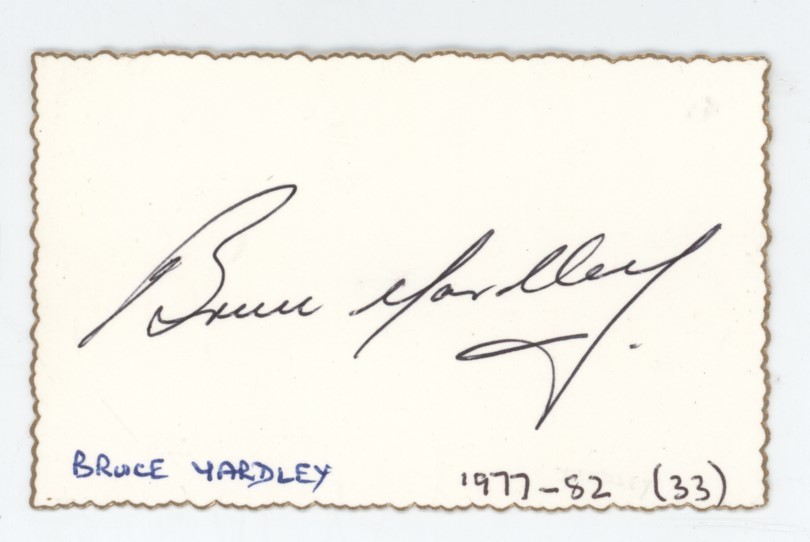 Bruce Yardley.
BRUCE YARDLEY 1977-82 (33)